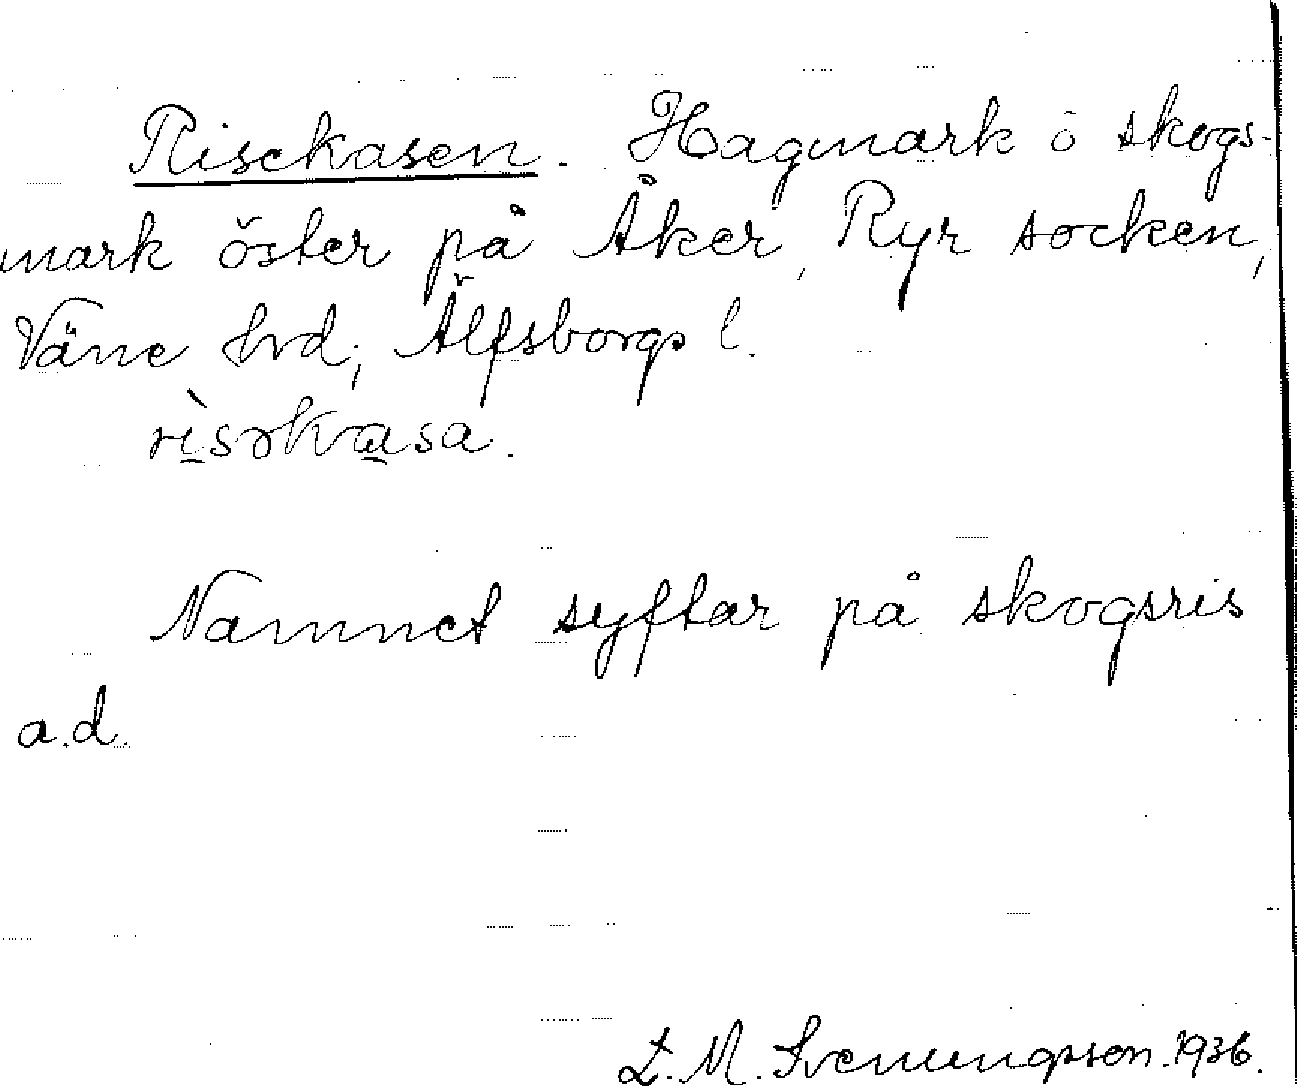 Risekasen. Hagmark o skogs-
mark öster på Åker, Ryr socken,
Väne hrd; Älfsborgs l.
rìsəkvasa.
Namnet syftar på skogsris
a.d.
L. M. Svenungsson. 1936.